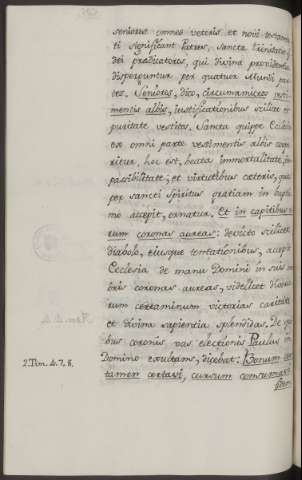 seniores omnes veteris et novi testamen-
ti significant Patres, Sancta Trinitatis
dei predicatores, qui divina providentia
disperguntur per quatuor Mundi par-
tes. Seniores, dico, circumamictos vesti-
mentis albis, iustificationibus scilicet et
puritate vestitos. Sancta quippe Ecclesia
ex omni parte vestimentis albis coope-
ritur, hoc est, beata immortalitate, im-
passibilitate, et virtutibus ceteris, quas
per sancti Spiritus gratiam in baptis-
mo accepit, ornatur. Et in capitibus eo-
rum coronas aureas: devicto scilicet
diabolo, eiusque tentationibus, accepit
Ecclesia de manu Domini in suis mem-
bris coronas aureas, videlicet diversa-
rum certaminum victorias caritate
et divina sapientia splendidas. De qui-
bus coronis vas electionis Paulus in
2. Tim. 4. 7. 8. Domino exultans, dicebat: Bonum cer-
tamen certavi, cursum consumavi